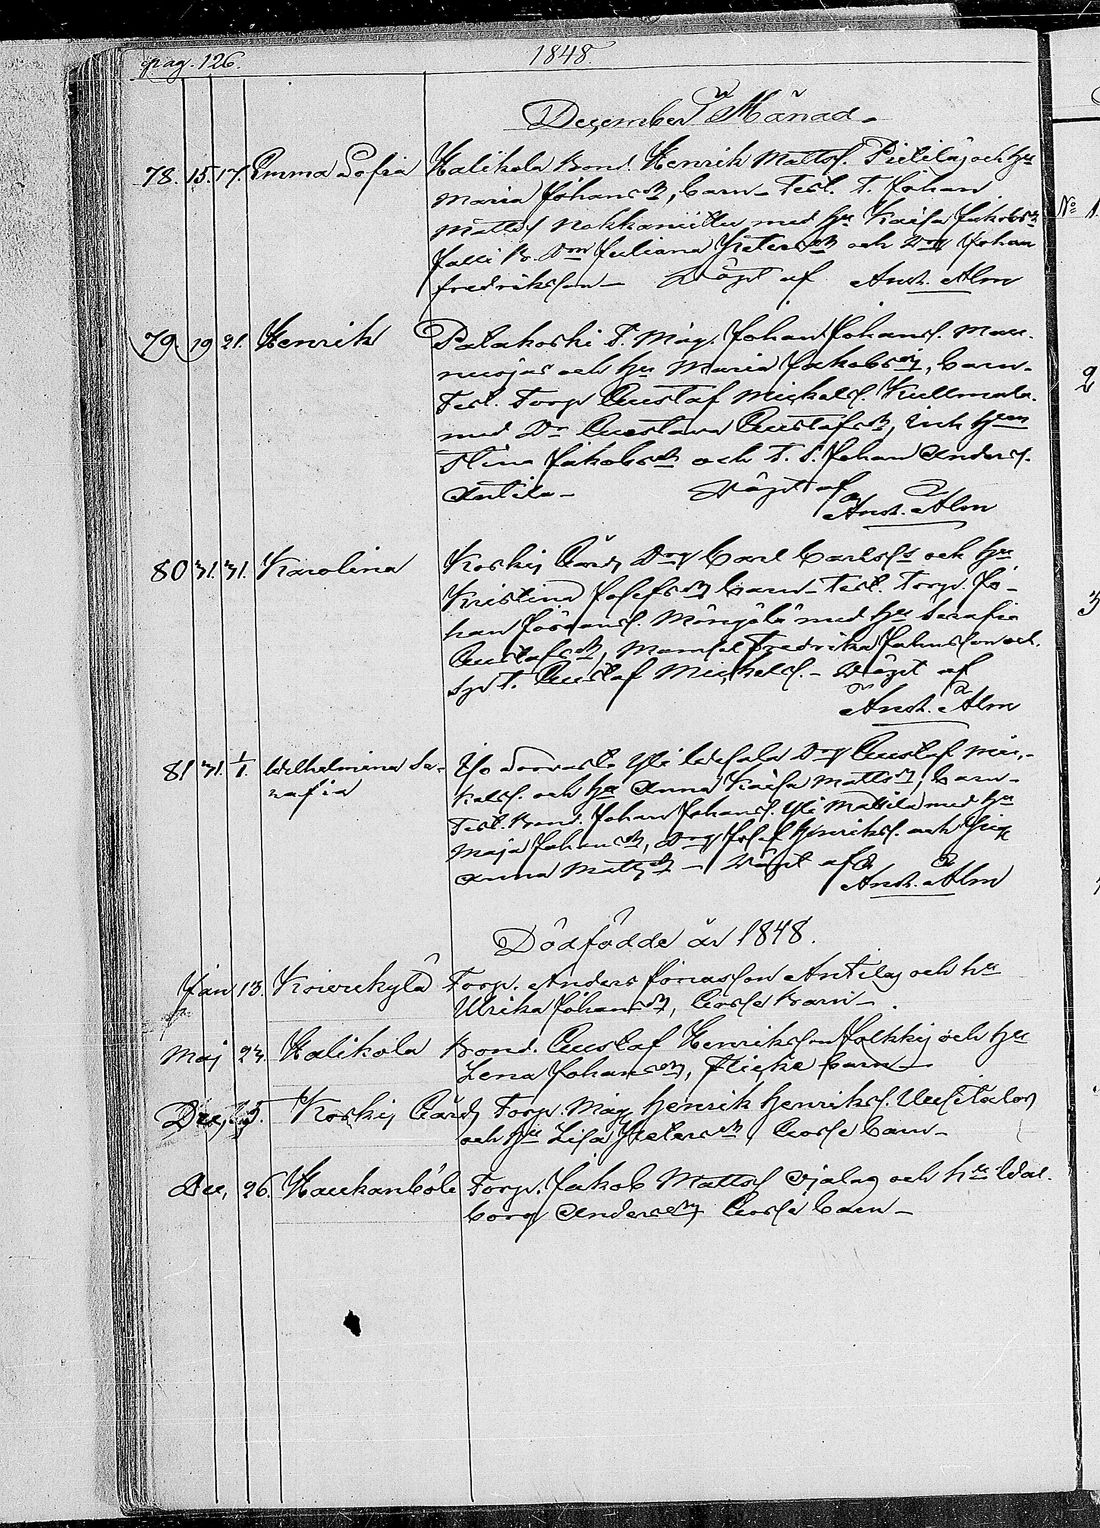 pag. 126. 1848.
December Månad.
78. 15. 17. Emma Sofia Halikola Bond. Henrik Mattss. Pietilä, och hu
Maria Johansdr, barn. Test. T. Johan
Mattss Nokkamüller med hu Kaisa Jakobsdr
Juliana och Johan
Fredriksson - Döpt af And. Alm
79 19 21. Henrik Palakoski T. Måg. Johan Johanss.
och hu Maria Jakobsdr, barn-
Test. Torp Gustaf Michelss. Kullmala
med Gustava Gustafsdr,
Stina Jakobsdr och T. S. Johan Anderss.
Antila - Döpt af
And. Alm
80 31. 31. Karolina Koskis Gård, Drg Carl Carlss och hu
Kristina Josefsdr barn - Test. Torp. Jo-
han med hu Serafia
Gustafsdr, Mamsel Fredrika och
Gustaf Michelss. - Döpt af
And. Alm
81 31. 1/1. Wilhelmina Se-
rafia Drg Gustaf Mic-
kelss. och hu Anna Kaisa Mattsdr, barn-
Test. Bond. Johan Johanss. Yli Mattila med hu
Maja Johansdr, Drg Josef Henrikss. och Pig.
Anna Mattsdr - Döpt af
And. Alm
Dödfödde år 1848.
Jan 13. Koivukylä Torp. Anders Jonasson Antila, och hu
Ulrika Johansdr, Gosse Barn -
Maj 23. Halikola Bond. Gustaf Henriksson Jalkki, och hu
Lena Johansdr, Flicke barn -
Dec, 25. Koskis Gård, Torp. Måg Henrik Henrikss. Uusitalo,
och hu Lisa Petersdr Gosse barn -
Dec, 26. Haukanböle Torp. Jakob Mattss Ojala, och hu Wal-
borg Andersdr Gosse barn -
No 1.
2
3